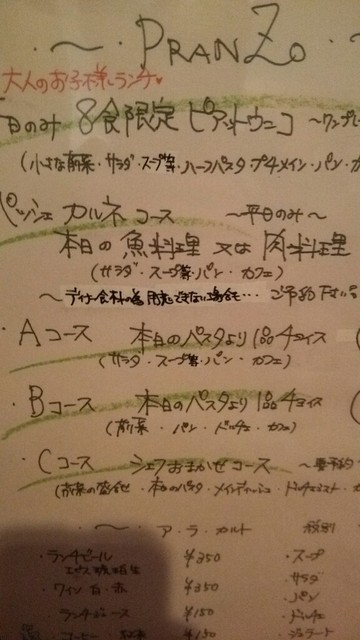 ~・PRANZO・~
大人のお子様ランチ♥
日のみ 8食限定 ピアットウニコ ~ワンプレ
(小さな前菜・サラダ・スープ等・ハーフパスタ プチメイン・パン・カ
ペッシェ カルネ コース ~平日のみ~
本日の 魚料理 又は 肉料理
(サラダ・スープ等・パン・カフェ)
ご予約下さい。
・Aコース 本日のパスタより1品チョイス
(サラダ・スープ等・パン・カフェ)
・Bコース 本日のパスタより1品チョイス
(前菜・パン・ドルチェ・カフェ)
・Cコース シェフおまかせコース ~要予約
(前菜の盛合せ・本日のパスタ・メインディッシュ・ドルチェミスト・カ
~・ア・ラ・カルト 税別
・ランチビール ¥350 ・スープ
・ワイン 白・赤 ¥350 サラダ
パン
ランチジュース ¥150 ・ドルチェ
コーヒー・紅茶 ¥150 ジェラート